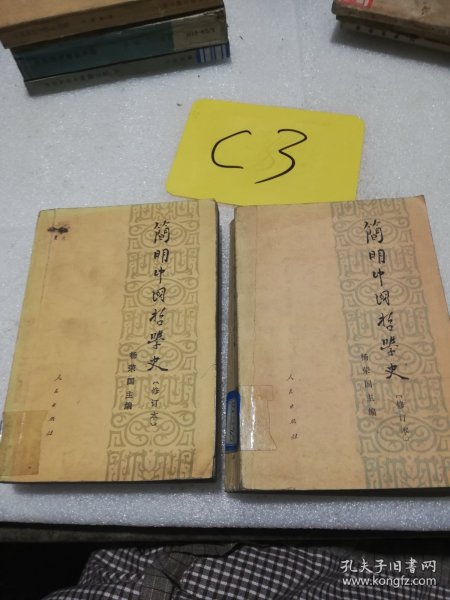 C3
簡明中国哲學史
〔修订本〕
杨荣国主编
人民出版社
簡明中国哲學史
〔修订本〕
杨荣国主编
人民出版社
孔夫子旧书网
www.kongfz.com